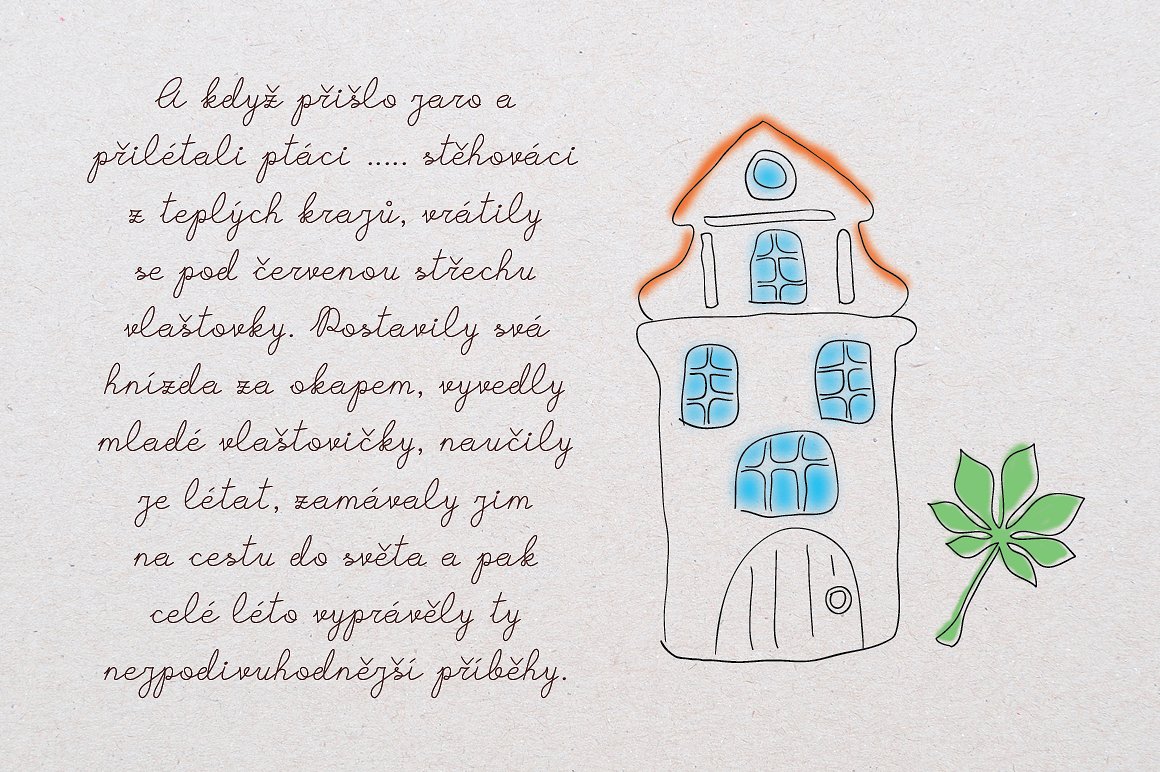 A když přišlo jaro a
přilétali ptáci ..... stěhováci
z teplých krajů, vrátily
se pod červenou střechu
vlaštovky. Postavily svá
hnízda za okapem, vyvedly
mladé vlaštovičky, naučily
je létat, zamávaly jim
na cestu do světa a pak
celé léto vyprávěly ty
nejpodivuhodnější příběhy.